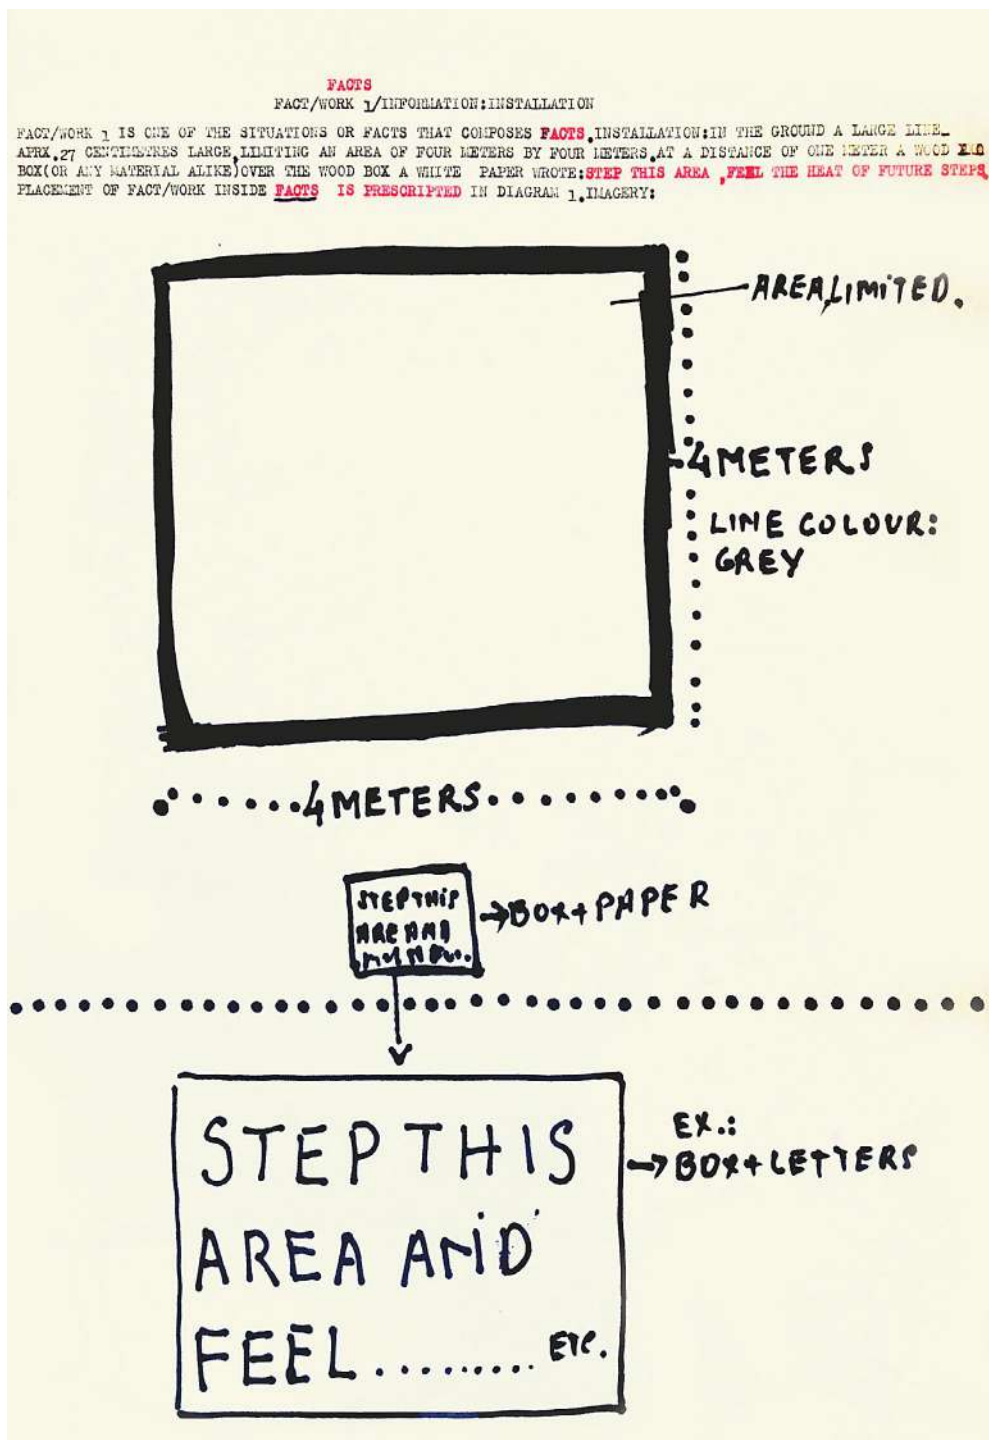 FACTS
FACT/WORK 1/INFORMATION:INSTALLATION
FACT/WORK 1 IS ONE OF THE SITUATIONS OR FACTS THAT COMPOSES FACTS.INSTALLATION:IN THE GROUND A LARGE LINE_
APRX.27 CENTIMETRES LARGE,LIMITING AN AREA OF FOUR METERS BY FOUR METERS.AT A DISTANCE OF ONE METER A WOOD
BOX(OR ANY MATERIAL ALIKE)OVER THE WOOD BOX A WHITE PAPER WROTE:STEP THIS AREA ,FEEL THE HEAT OF FUTURE STEPS,
PLACEMENT OF FACT/WORK INSIDE FACTS IS PRESCRIPTED IN DIAGRAM 1.IMAGERY:
AREA,LIMITED.
4 METERS
LINE COLOUR:
GREY
4 METERS
STEP THIS
ARE AND
→BOX+PAPER
STEP THIS
AREA AND
FEEL......... ETC.
EX.:
→BOX+LETTERS